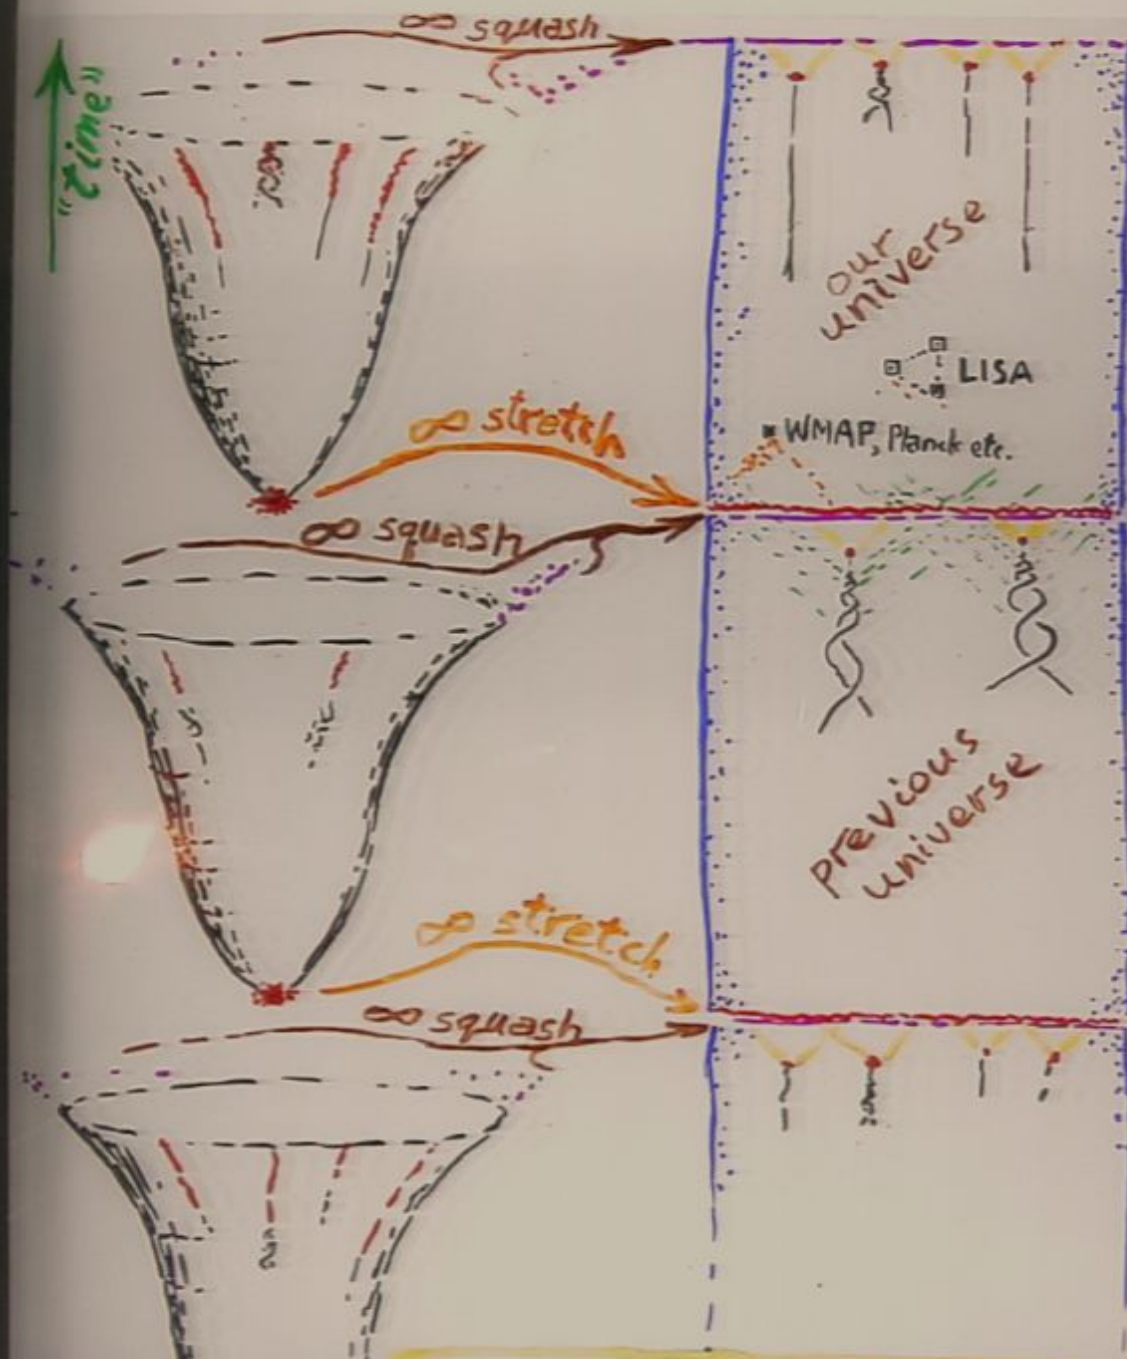 ∞ squash
"time"
our
universe
LISA
WMAP, Planck etc.
∞ stretch
∞ squash
previous
universe
∞ stretch
∞ squash